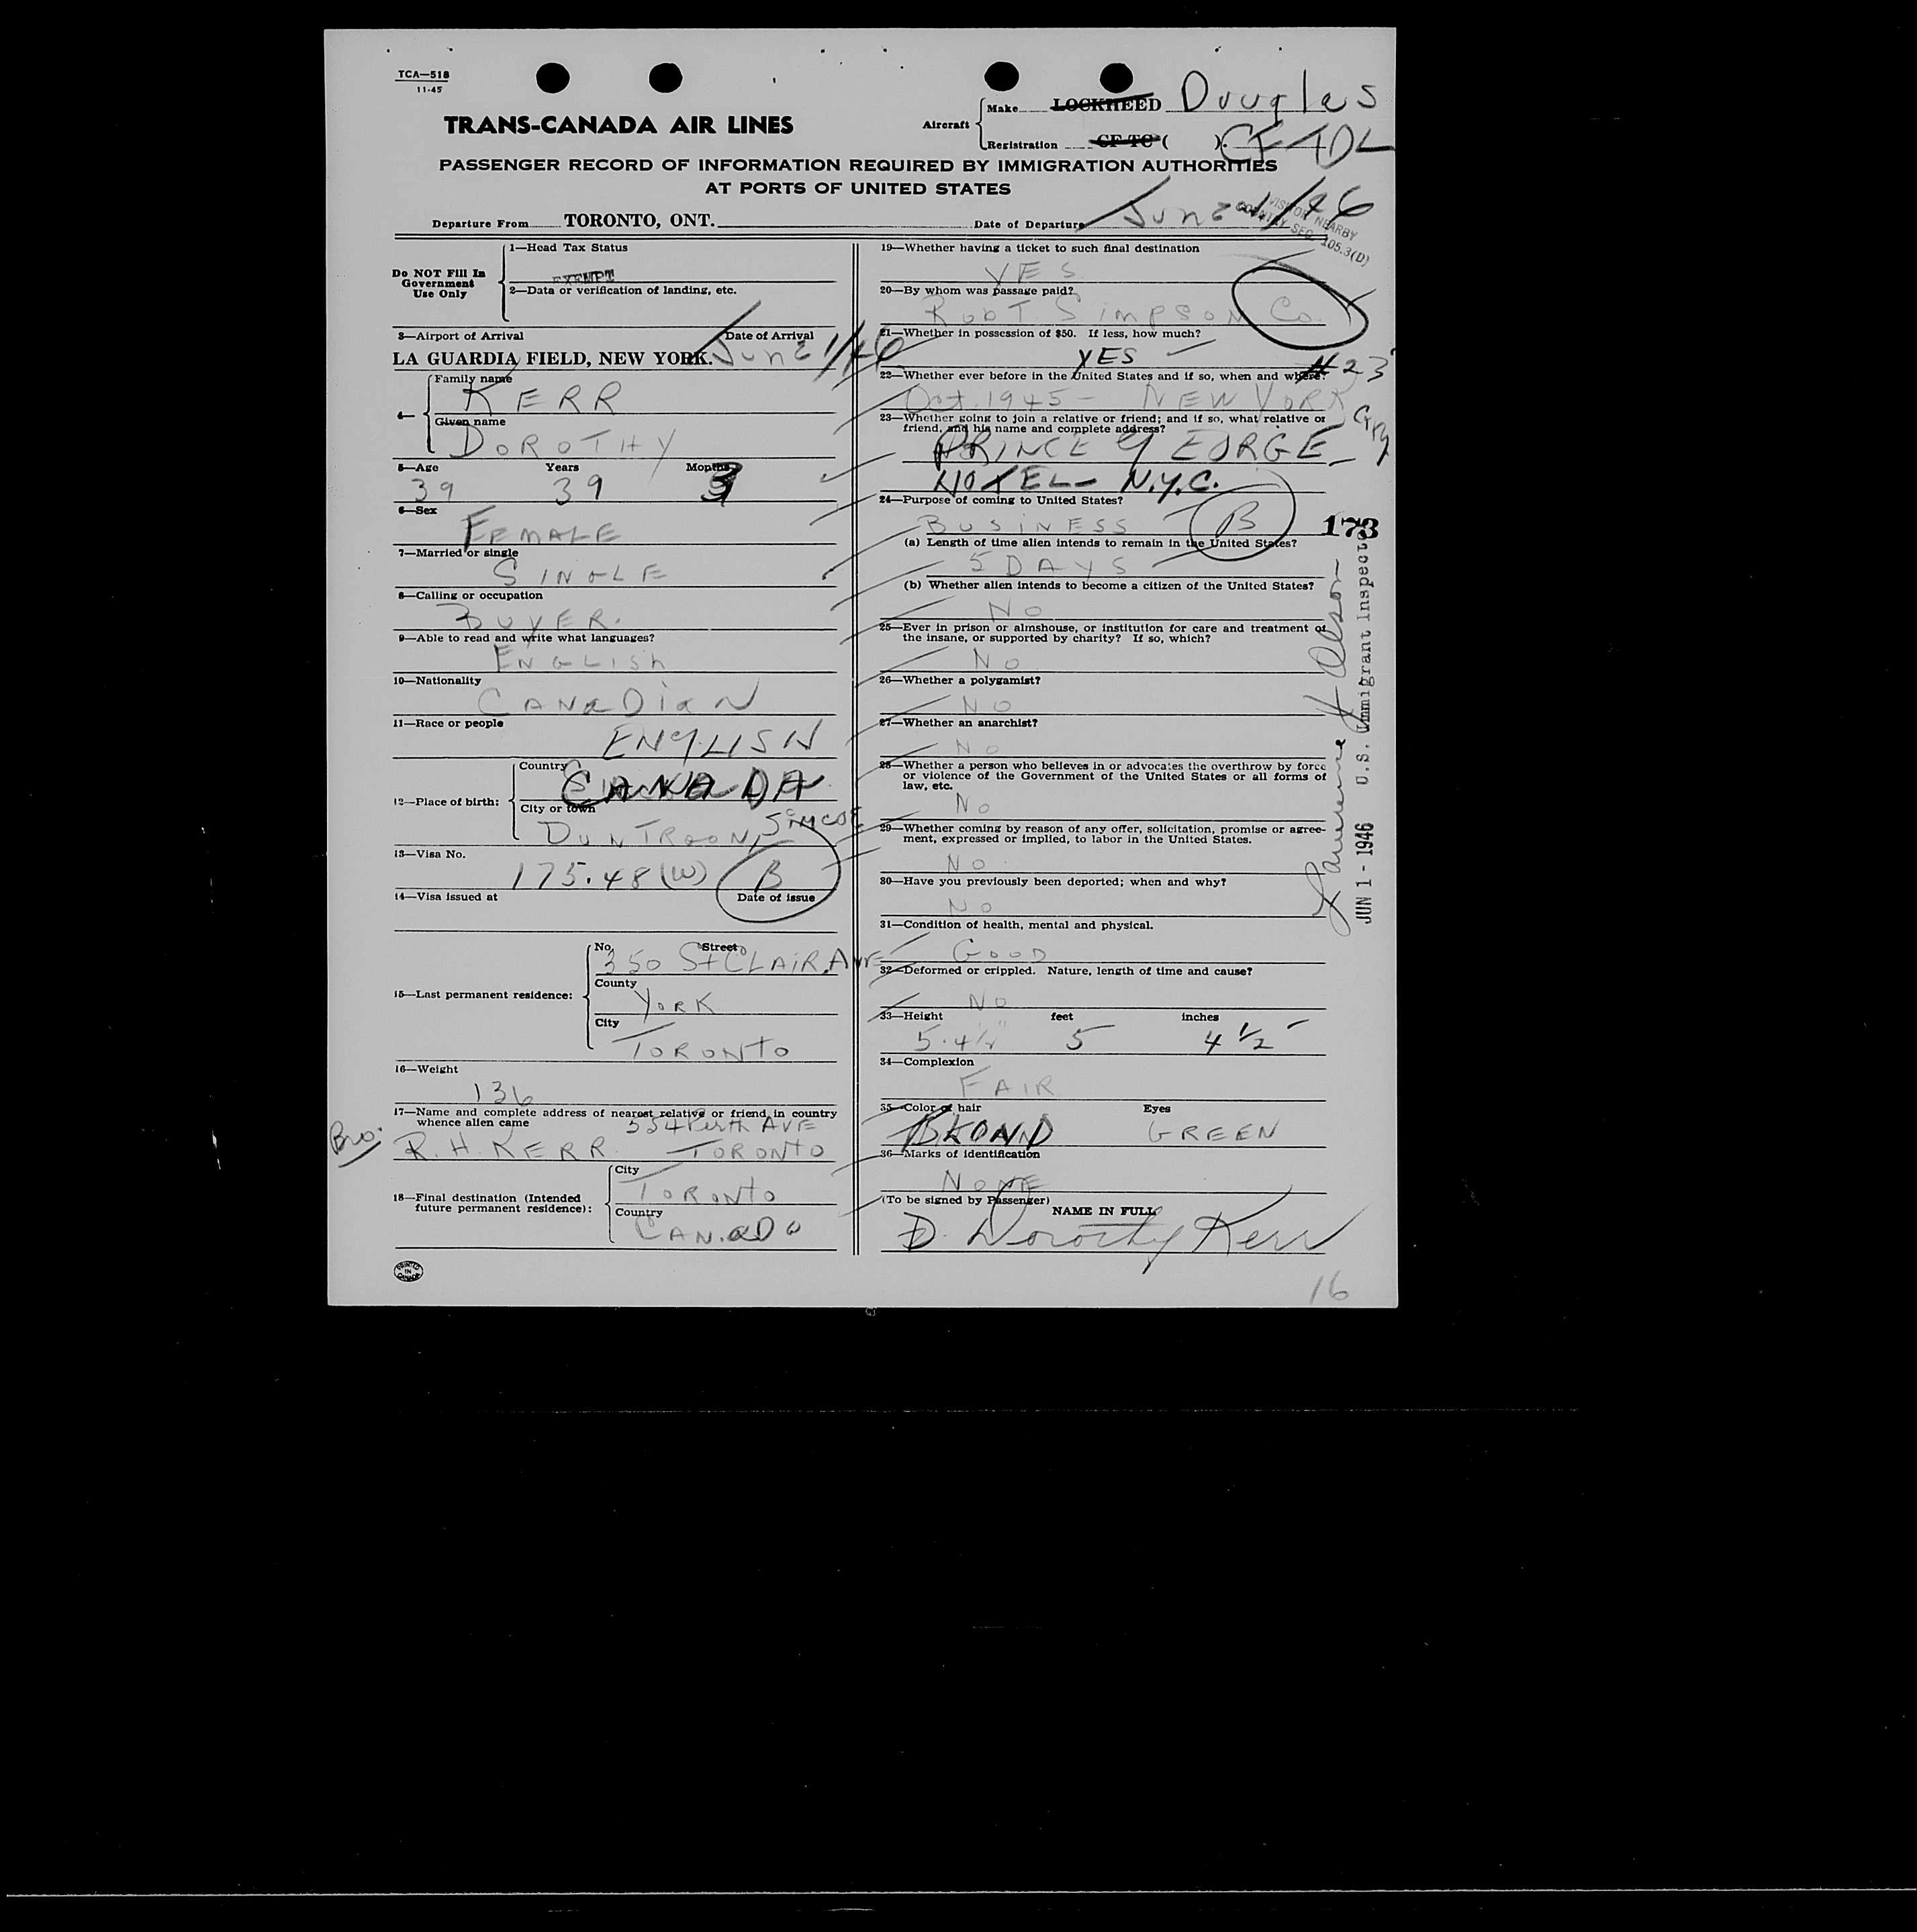 TCA—518
11-45
TRANS-CANADA AIR LINES
Aircraft
Make LOCKHEED Douglas
Registration CF-TC ( ). CF TDL
PASSENGER RECORD OF INFORMATION REQUIRED BY IMMIGRATION AUTHORITIES
AT PORTS OF UNITED STATES
Departure From TORONTO, ONT. Date of Departure June 1/46
VISITOR NEARBY
COUNTRY SEC. 105.3(D)
Do NOT Fill In
Government
Use Only
1—Head Tax Status
EXEMPT
2—Data or verification of landing, etc.
3—Airport of Arrival Date of Arrival
LA GUARDIA FIELD, NEW YORK. June 1/46
4—
Family name
KERR
Given name
DOROTHY
5—Age Years Months
39 39 3
6—Sex
FEMALE
7—Married or single
SINGLE
8—Calling or occupation
BUYER.
9—Able to read and write what languages?
ENGLISh
10—Nationality
CANaDiaN
11—Race or people
ENGLISH
12—Place of birth:
Country
CANADA
City or town
DUNTROON, SIMCOE
13—Visa No.
175.48(W) B
14—Visa issued at Date of issue
15—Last permanent residence:
No. Street
350 St CLAiR AVE
County
YORK
City
TORONTO
16—Weight
136
17—Name and complete address of nearest relative or friend in country
whence alien came
554 Perth AVE
Bro: R. H. KERR TORONTO
18—Final destination (Intended
future permanent residence):
City
TORONTO
Country
CANADA
PRINTED
IN
CANADA
19—Whether having a ticket to such final destination
YES
20—By whom was passage paid?
RobT. SIMPSON Co.
21—Whether in possession of $50. If less, how much?
YES
22—Whether ever before in the United States and if so, when and where? #23
Oct. 1945 – NEW YORK City
23—Whether going to join a relative or friend; and if so, what relative or
friend, and his name and complete address?
PRINCE GEORGE
HOTEL – N.Y.C.
24—Purpose of coming to United States?
BUSINESS B
173
(a) Length of time alien intends to remain in the United States?
5 DAYS
(b) Whether alien intends to become a citizen of the United States?
NO
25—Ever in prison or almshouse, or institution for care and treatment of
the insane, or supported by charity? If so, which?
NO
26—Whether a polygamist?
NO
27—Whether an anarchist?
NO
28—Whether a person who believes in or advocates the overthrow by force
or violence of the Government of the United States or all forms of
law, etc.
NO
29—Whether coming by reason of any offer, solicitation, promise or agree-
ment, expressed or implied, to labor in the United States.
NO
30—Have you previously been deported; when and why?
NO
31—Condition of health, mental and physical.
GOOD
32—Deformed or crippled. Nature, length of time and cause?
NO
33—Height feet inches
5.4½" 5 4 ½
34—Complexion
FAIR
35—Color of hair Eyes
BLOND GREEN
36—Marks of identification
NONE
(To be signed by Passenger)
NAME IN FULL
D. Dorothy Kerr
16
Lawrence H Olson
JUN 1 - 1946 U.S. Immigrant Inspector